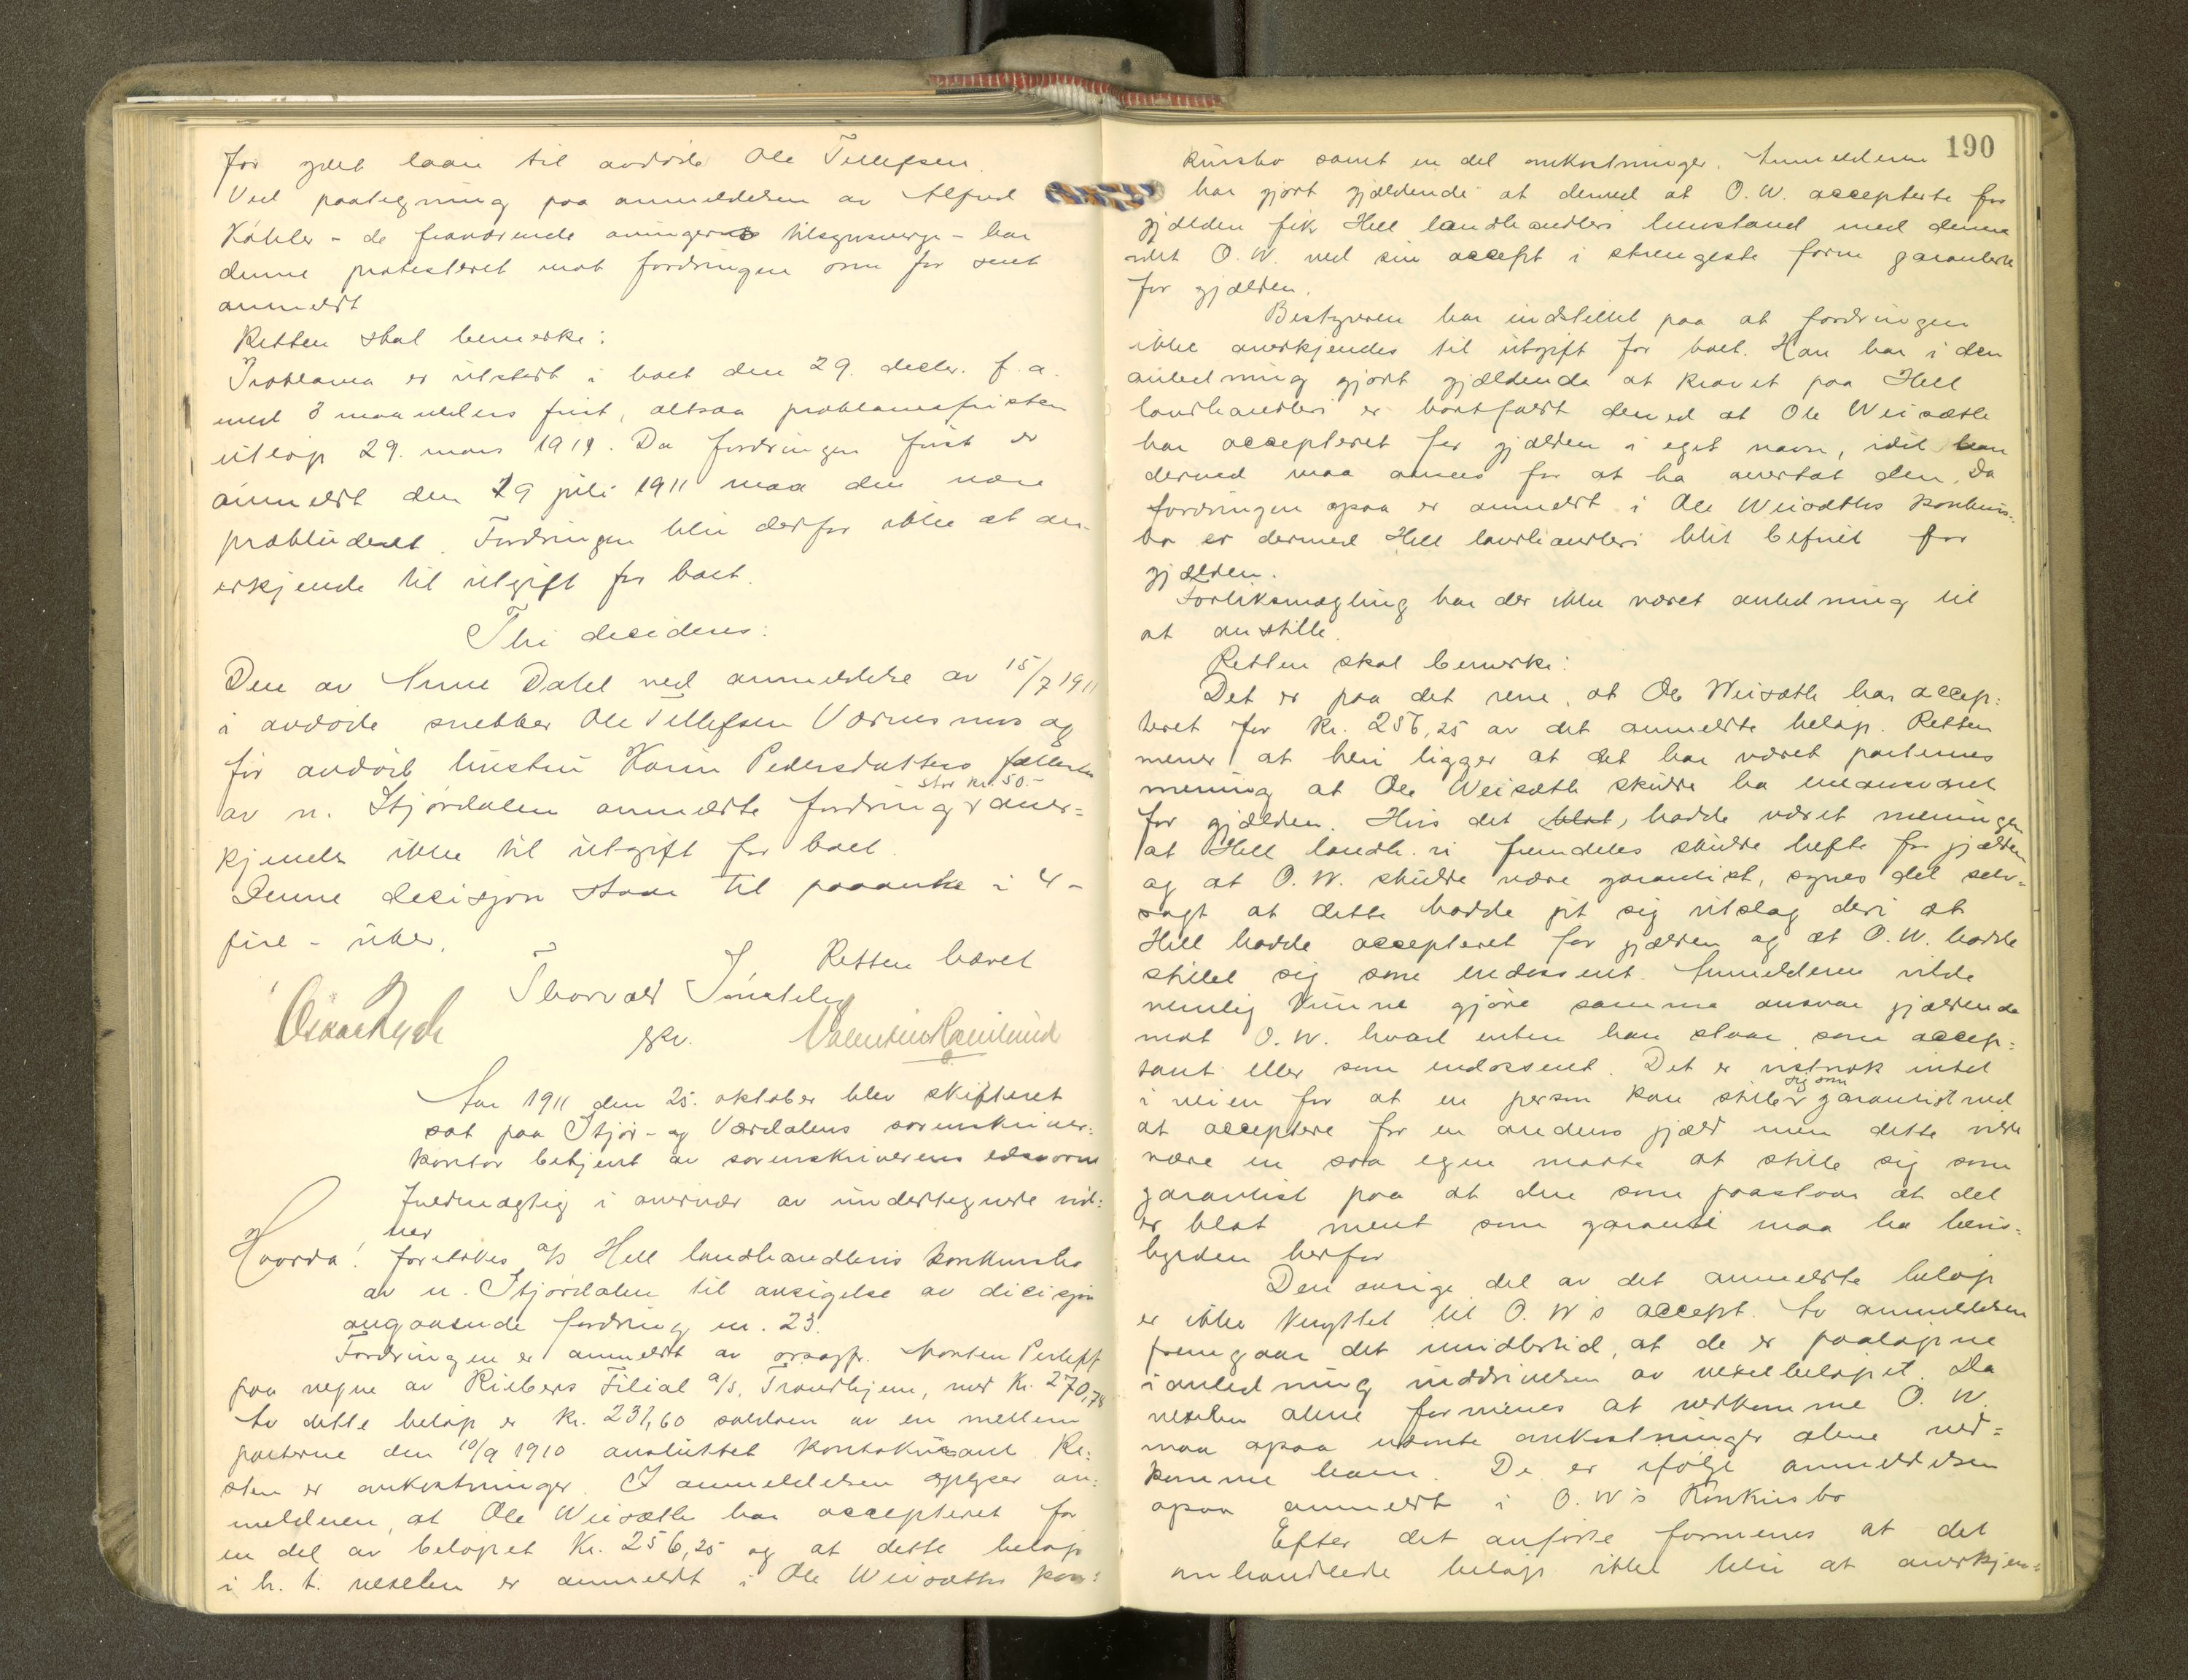 for ydet laan til avdöde Ole Tellefsen.
Ved paategning paa anmeldelsen av Alfred
Köhler - de fraværende arvingers tilsynsverge - har
denne protesteret mot fordringen som for sent
anmeldt
Retten skal bemerke:
Proklama er utstedt i boet den 29. decbr. f. a.
med 3 maaneders frist, altsaa proklamafristen
utløp 29. mars 1911. Da fordringen först er
anmeldt den 19 juli 1911 maa den være
prækluderet. Fordringen blir derfor ikke at an-
erkjende til utgift for boet.
Thi decideres:
Den av Anne Dahl ved anmeldelse av 15/7 1911
i avdöde snekker Ole Tellefsen Værnesmos og
för avdöde hustru Karen Pedersdatters fællesbo
av n. Stjørdalen anmeldte fordring stor kr. 50.- aner=
kjendes ikke til utgift for boet.
Denne decisjon staar til paaanke i 4 -
fire - uker.
Retten hævet
Thorvald
Oskar Rygh fkv. Valentin
Aar 1911 den 25. oktober blev skifteret
sat paa Stjør- og Værdalens sorenskriver=
kontor betjent av sorenskriverens edsvorne
fuldmægtig i overvær av undertegnede vid=
ner
Hvorda! foretokes a/s Hell landhandleris konkursbo
av n. Stjørdalen til avsigelse av decisjon
angaaende fordring nr. 23.
Fordringen er anmeldt av orsagfr. Morten
paa vegne av Riebers Filial a/s, Trondhjem, med Kr. 270,78
Av dette beløp er Kr. 231,60 saldoen av en mellem
parterne den 10/9 1910 avsluttet kontokurant. Re=
sten er omkostninger. I anmeldelsen oplyser an=
melderen, at Ole Weisæth har accepteret for
en del av beløpet Kr. 256,25 og at dette beløp
i h. t. vekselen er anmeldt i Ole Weisæths kon=
190
kursbo samt en del omkostninger. Anmelderen
har gjort gjældende at dermed at O. W. accepterte for
gjælden fik Hell landhandleri henstand med denne
idet O. W. ved sin accept i strengeste form garanterte
for gjælden.
Bestyreren har indstillet paa at fordringen
ikke anerkjendes til utgift for boet. Han har i den
anledning gjort gjældende at kravet paa Hell
landhandleri er bortfaldt derved at Ole Weisæth
har accepteret for gjælden i eget navn, idet han
dermed maa ansees for at ha overtat den. Da
fordringen ogsaa er anmeldt i Ole Weisæths konkurs=
bo er dermed Hell landhandleri blit befriet for
gjælden.
Forliksmægling har der ikke været anledning til
at anstille.
Retten skal bemerke:
Det er paa det rene, at Ole Weisæth har accep=
teret for Kr. 256,25 av det anmeldte beløp. Retten
mener at heri ligger at det har været parternes
mening at Ole Weisæth skulde ha eneansvaret
for gjælden. Hvis det blot, hadde været meningen
at Hell landh.ri fremdeles skulde hefte for gjælden
og at O. W. skulde være garantist, synes det selv=
sagt at dette hadde git sig utslag deri at
Hell hadde accepteret for gjælden og at O. W. hadde
stillet sig som endossent. Anmelderen vilde
nemlig kunne gjöre samme ansvar gjældende
mot O. W. hvad enten han staar som accep=
tant eller som endossent. Det er vistnok intet
i veien for at en person kan stille sig som garantist ved
at acceptere for en andens gjæld men dette vilde
være en saa egen maate at stille sig som
garantist paa at den som paastaar at det
er blot ment som garanti maa ha bevis=
byrden herfor
Den øvrige del av det anmeldte beløp
er ikke knyttet til O. W's accept. Av anmeldelsen
fremgaar det imidlertid, at de er paaløpne
i anledning inddrivelsen av vekselbeløpet. Da
vekselen alene formenes at vedkomme O. W.
maa ogsaa uvente omkostninger alene ved=
komme ham. De er ifølge anmeldelsen
ogsaa anmeldt i O. W's Konkursbo
Efter det anförte formenes at det
omhandlede beløp ikke blir at anerkjen=